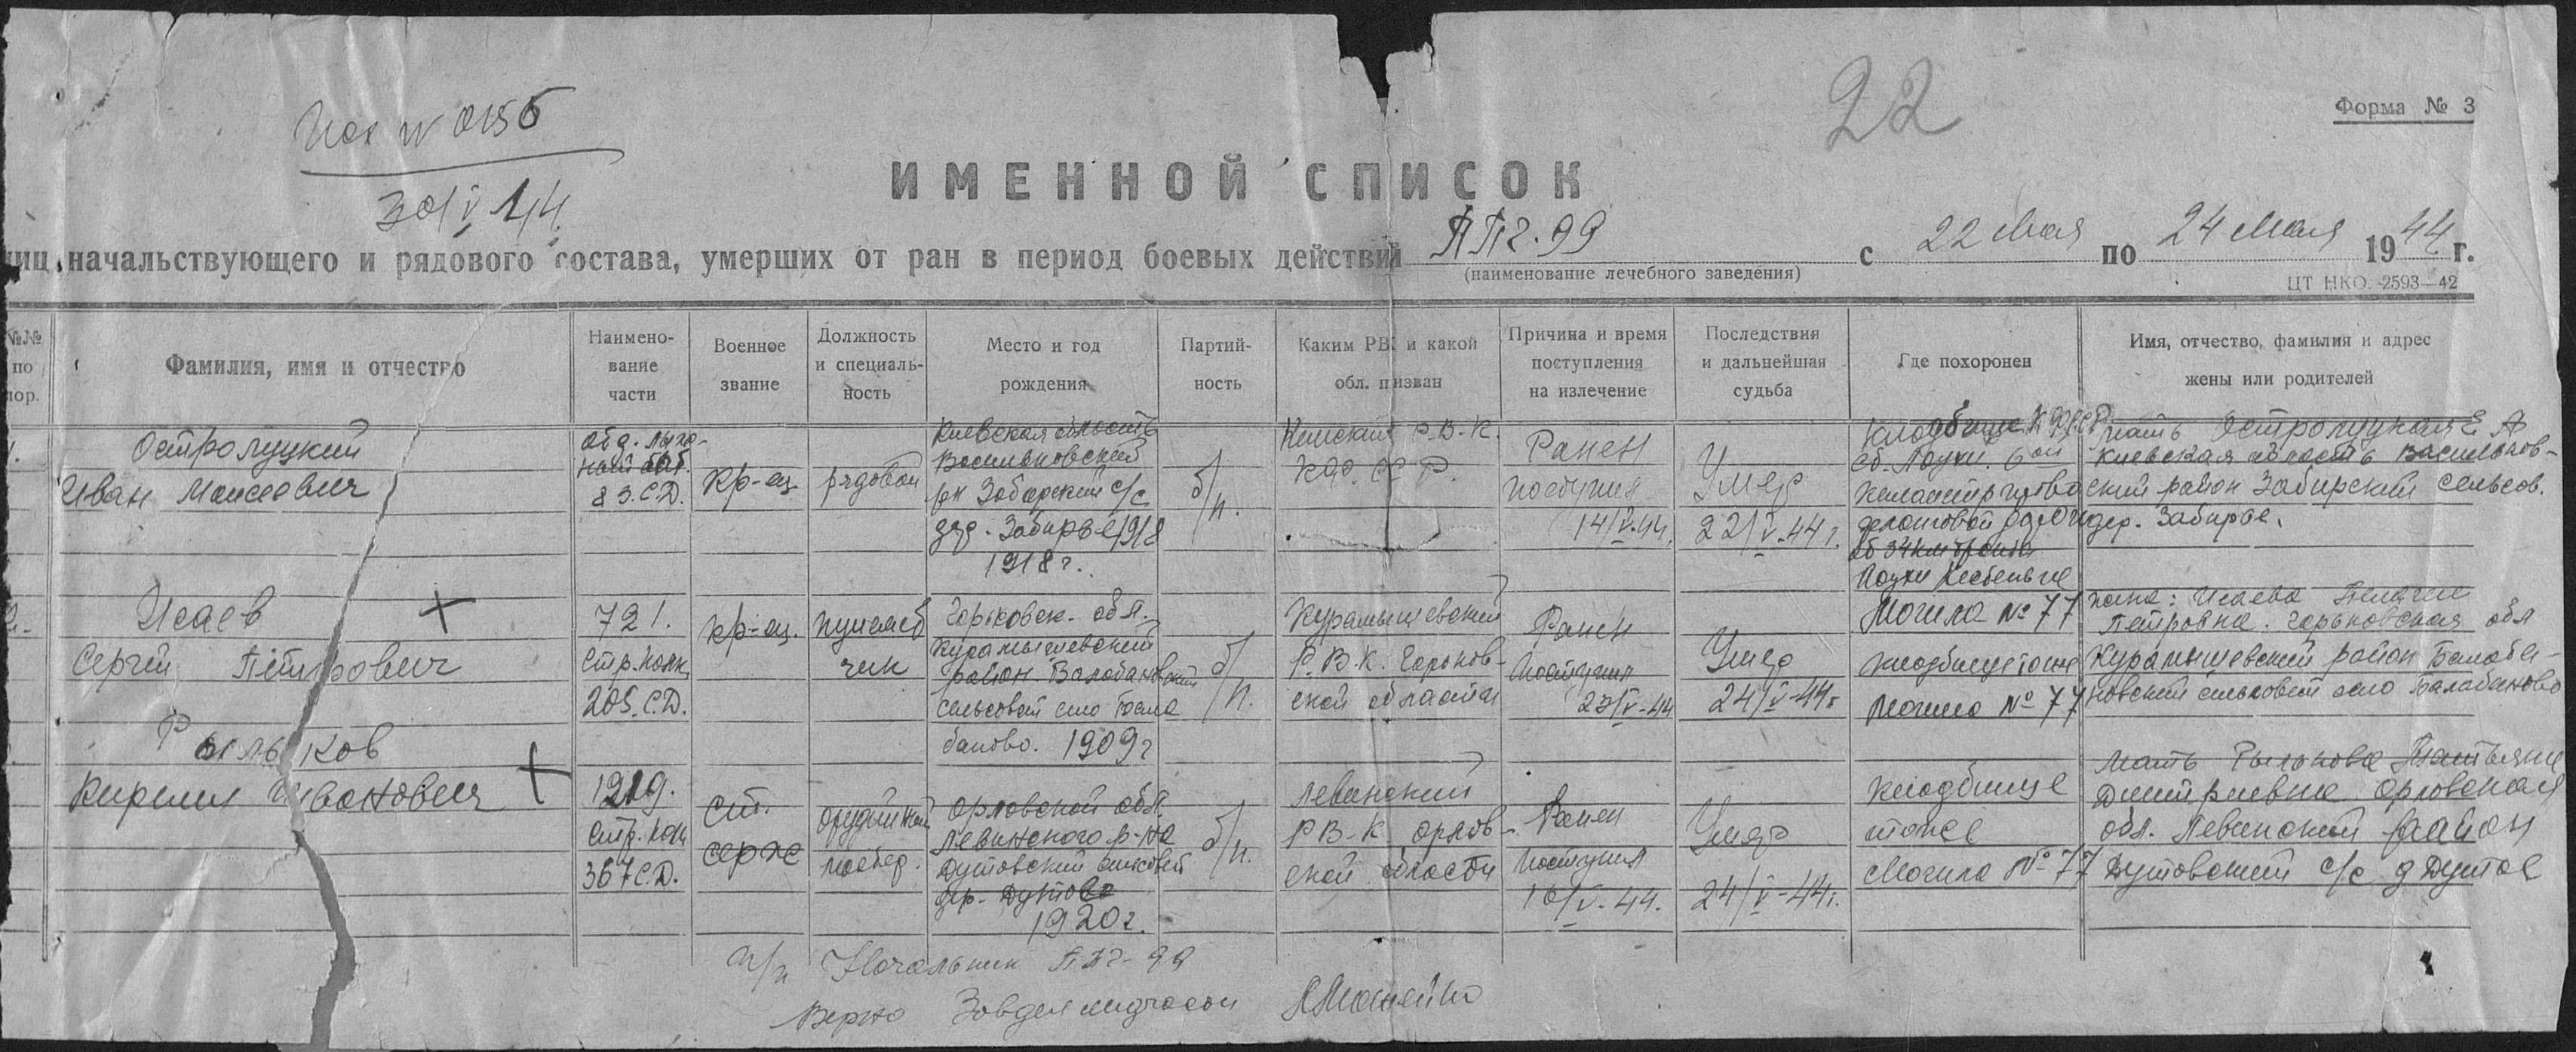 Исх № 0156
22
Форма № 3
30/V 44.
ИМЕННОЙ СПИСОК
лиц начальствующего и рядового состава, умерших от ран в период боевых действий ППГ-99 с 22 мая по 24 мая 1944 г.
(наименование лечебного заведения)
ЦТ НКО. 2593—42
№№ по пор.
Фамилия, имя и отчество
Наимено-
вание
части
Военное
звание
Должность
и специаль-
ность
Место и год
рождения
Партий-
ность
Каким РВК и какой
обл. призван
Причина и время
поступления
на излечение
Последствия
и дальнейшая
судьба
Где похоронен
Имя, отчество, фамилия и адрес
жены или родителей
1.
Остролуцкий
Иван Моисеевич
отд. лыж-
ный бат.
83.С.Д.
кр-ец
рядовой
Киевская область
Васильковский
рн Забирский с/с
дер. Забирье 1918
1918 г.
б/п.
Кемский Р.В.К.
КФ.ССР.
Ранен
поступил
14/V.44.
Умер
22/V-44 г.
Кладбище КФССР
ст. Лоухи. 6ой
километр
Лоухи Кестеньга
Могила № 77
мать Остролуцкая Е. А
Киевская область Васильков-
ский район Забирский сельсов.
дер. Забирье.
2.
Исаев
Сергей Петрович
721.
стр.полк
205.С.Д.
кр-ец.
пулемет
чик
Горьковск. обл.
Курмышевский
район. Балабановский
сельсовет село Бала
баново. 1909 г
б/п.
Курмышевский
Р.В.К. Горьков-
ской области
Ранен
поступил
23/V-44
Умер
24/V-44г
кладбище тоже
Могила № 77
жена: Исаева Пелагея
Петровна. Горьковская обл
Курмышевский район Балаба-
новский сельсовет село Балабаново
Рыльков
Кирилл Иванович
1219.
стр. полк
367С.Д.
ст.
серж
орудийный
Орловской обл.
Ливенского р-на
Дутовский сельсовет
дер. Дутово
1920 г.
б/п.
Ливенский
РВ-К Орлов-
ской области
Ранен
поступил
16/V-44.
Умер
24/V-44г.
кладбище
тоже
Могила № 77
Мать Рылькова Татьяна
Дмитриевна Орловская
обл. Ливенский район
Дутовский с/с д Дутое
п/п Начальник ППГ-99
Верно Завделопроизвод